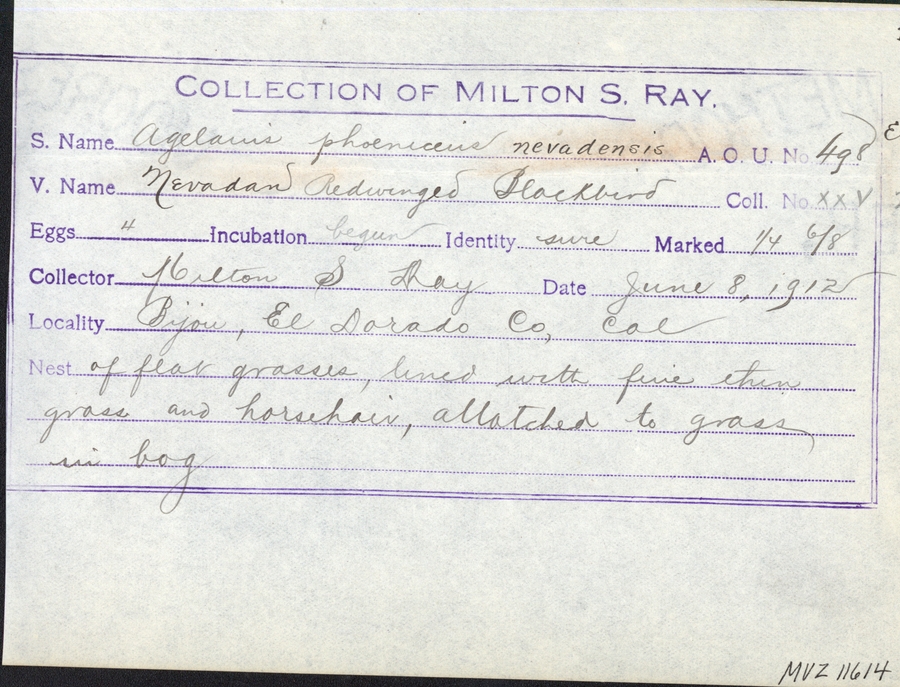 COLLECTION OF MILTON S. RAY.
S. Name Agelaius phoeniceus nevadensis A. O. U. No. 498
V. Name Nevadan Redwinged Blackbird Coll. No. XXV
Eggs 4 Incubation begun Identity sure Marked 1/4 6/8
Collector Milton S Ray Date June 8, 1912
Locality Bijou, El Dorado Co, Cal
Nest of flat grasses, lined with fine thin
grass and horsehair, attatched to grass
in bog
MVZ 11614